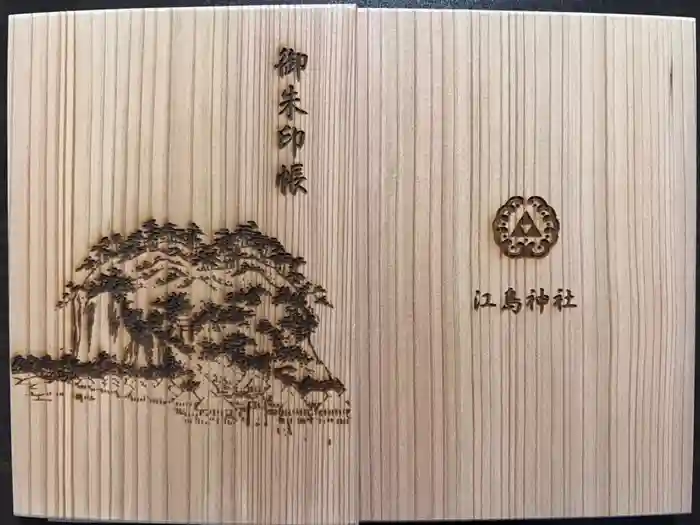 御朱印帳
江島神社